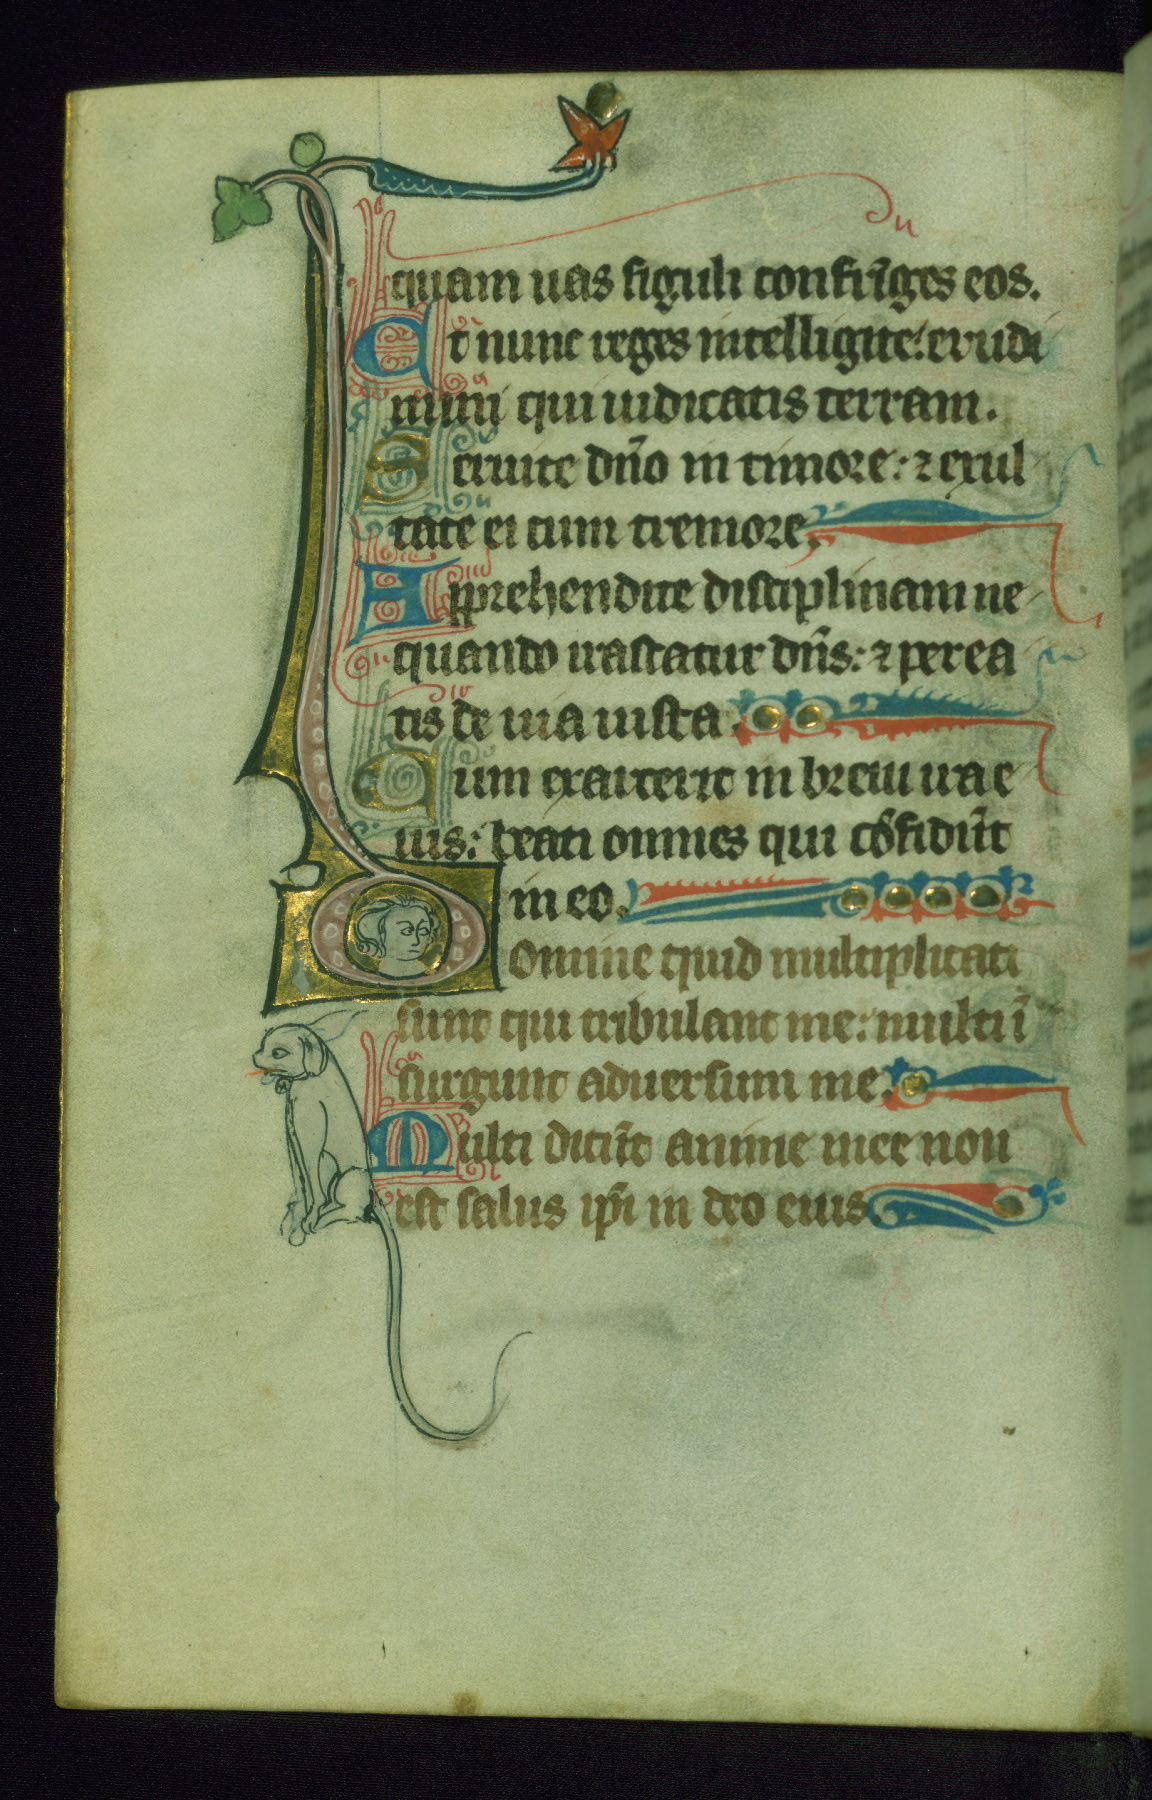 quam uas figuli confrīges eos.
Et nunc reges intelligite: erudi
mini qui iudicatis terram.
Seruite dn̄o in timore: ⁊ exul
tate ei cum tremore.
Apprehendite disciplinam ne
quando irascatur dn̄s: ⁊ perea
tis de uia iusta.
Cum exarcerit in breui ira e
ius: beati omnes qui cōfidūt
in eo.
Domine quid multiplicati
sunt qui tribulant me: multi ī
surgunt aduersum me.
Multi dicūt anime mee non
est salus ip̄i in deo eius.